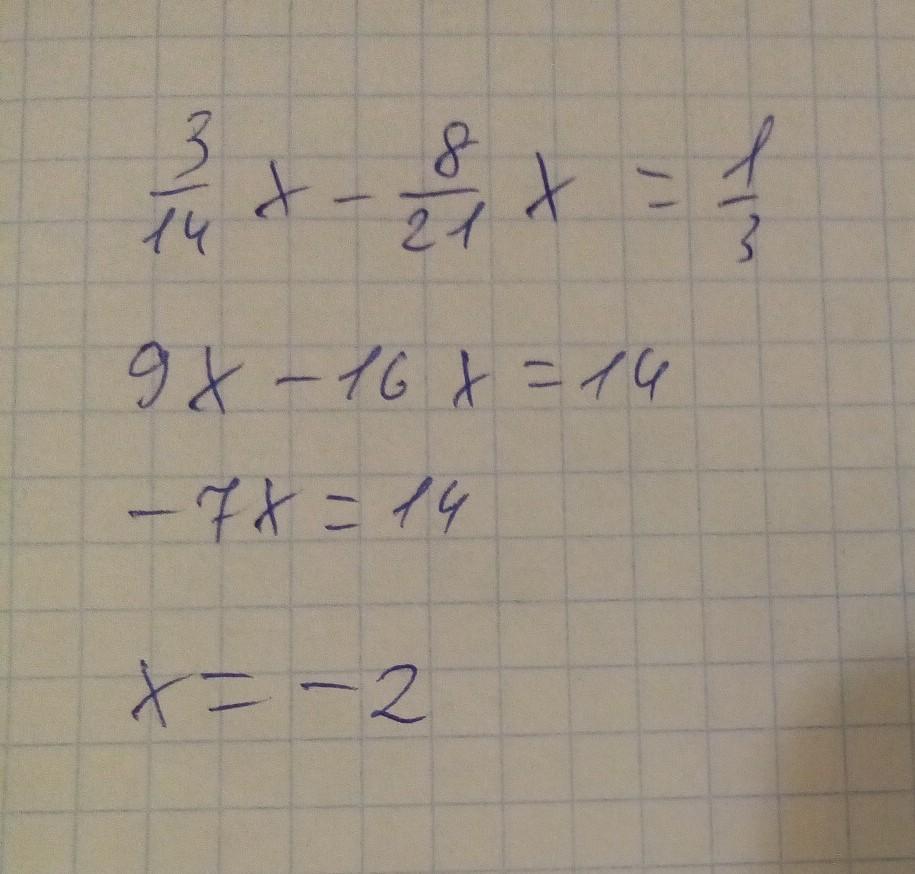 3/14 x - 8/21 x = 1/3
9x - 16x = 14
-7x = 14
x = -2